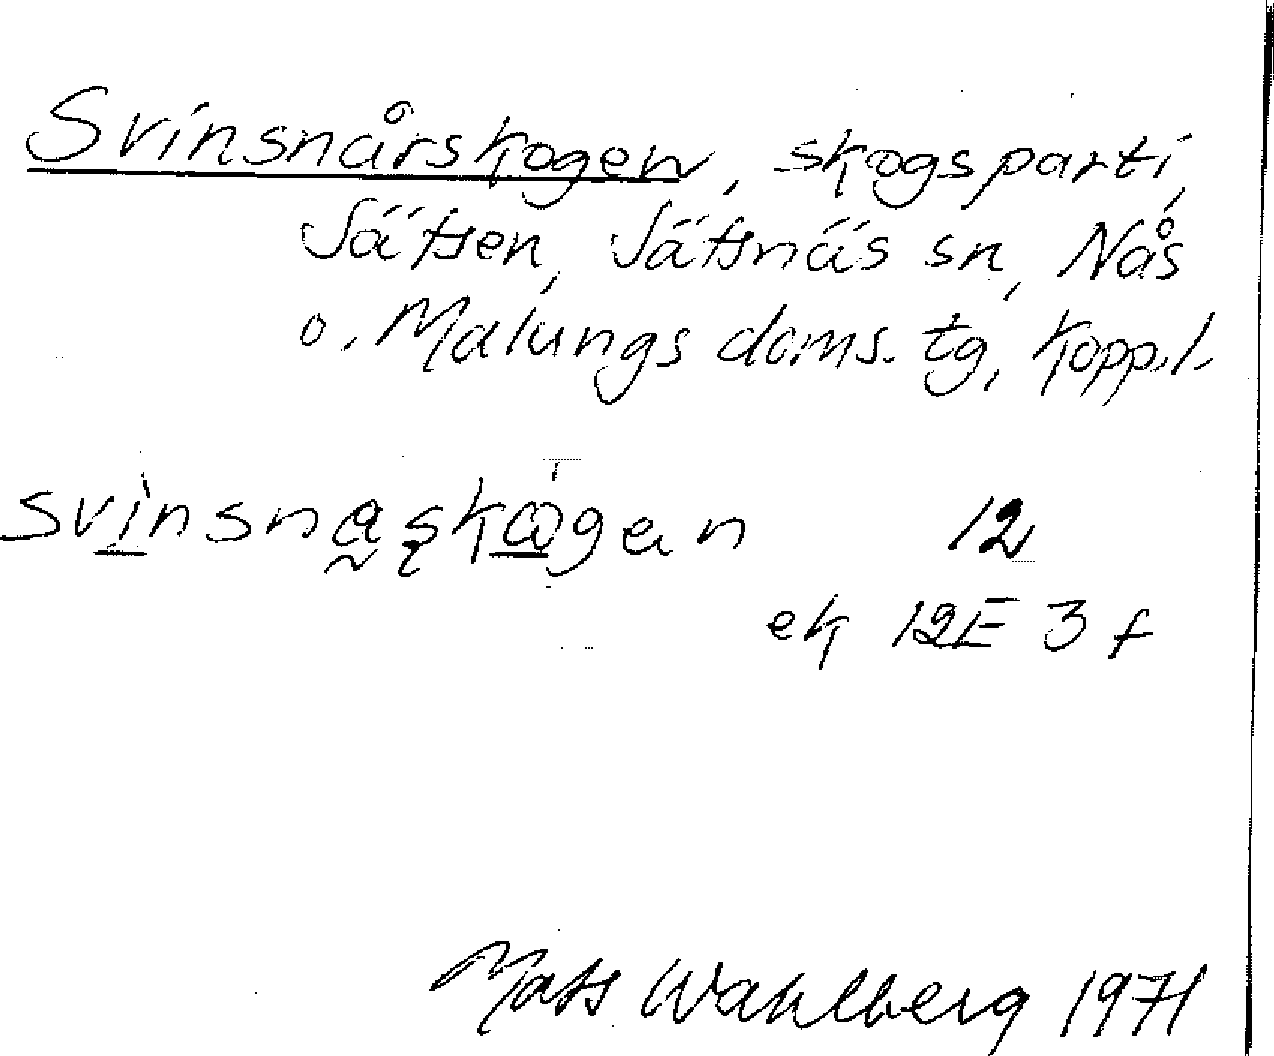 Svinsnårskogen, skogsparti,
Jätsen, Jätsnäs sn, Nås
o. Malungs doms. tg, Kopp.l.
svinsnaskógen 12
ek 12E 3 f
Mats Wahlberg 1971